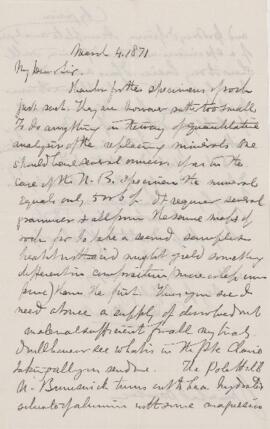 March 4. 1871
My Dear Sir.
Thanks for the specimens of rock
just sent. They are however rather too small
To do anything in the way of quantitative
analysis of the replacing minerals one
should have several ounces if as in the
case of the N. B. specimen the mineral
equals only 5 or 6 p. It requires several
grammes & all from the same mass of
rock for to take a second sample
treat it and might yield something
different in composition more or less
pure) than the first. Thus you see I
need at once a supply of
material sufficient for all my trials
I would however see what is in the Pte Claire
The Pole Hill
N. Brunswick turns out to be a hydrated
silicate of alumina with some magnesia